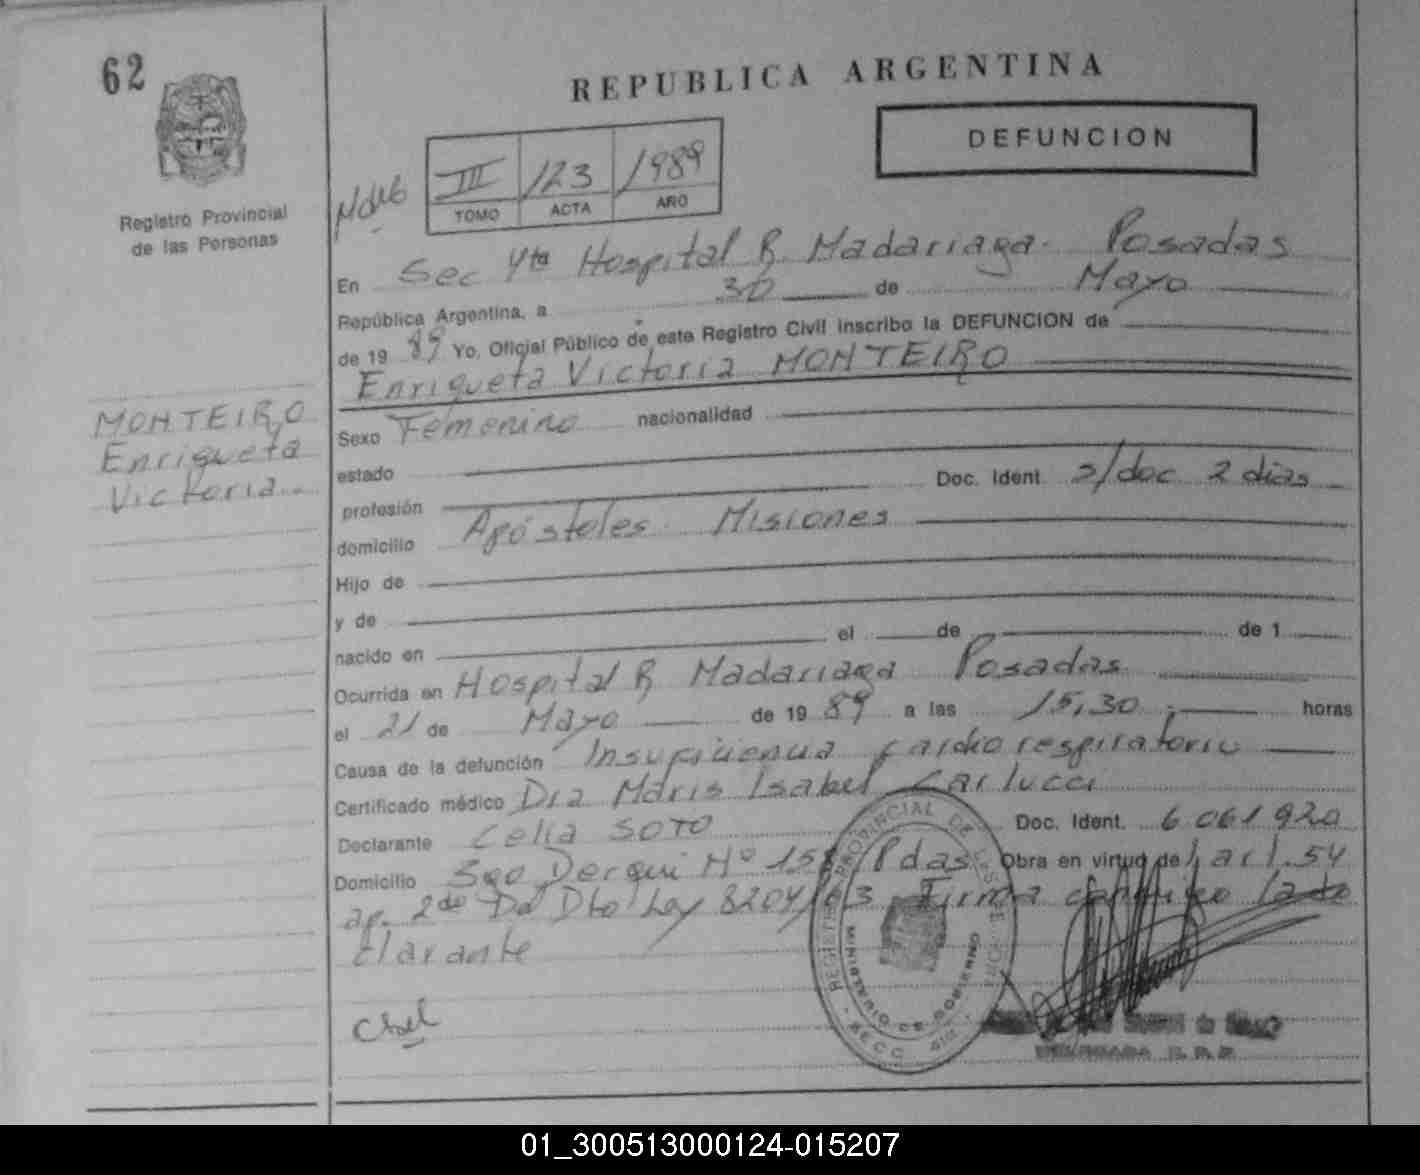 62
REPUBLICA ARGENTINA
DEFUNCION
III /123 /1989
TOMO ACTA AÑO
Registro Provincial
de las Personas
En Sec 4ta Hospital R. Madariaga. Posadas
República Argentina, a 30 de Mayo
de 19 89 Yo, Oficial Público de este Registro Civil inscribo la DEFUNCION de
Enriqueta Victoria MONTEIRO
MONTEIRO
Enriqueta
Victoria..
Sexo Femenino nacionalidad
estado
profesión Doc. Ident. s/doc 2 dias
domicilio Apóstoles. Misiones
Hijo de
y de
nacido en el de de 1
Ocurrida en Hospital R Madariaga Posadas
el 21 de Mayo de 19 89 a las 15,30 horas
Causa de la defunción Insuficiencia cardio respiratoria
Certificado médico Dra Maris Isabel Carlucci
Declarante Celia SOTO Doc. Ident. 6.061.920
Domicilio Sgo Derqui Nº 158 Pdas Obra en virtud de art. 54
ap. 2do Dto Ley 8204/63 Firma conmigo la de
clarante
REGISTRO PROVINCIAL DE LAS PERSONAS
MINISTERIO DE GOBIERNO
SECC.
01_300513000124-015207